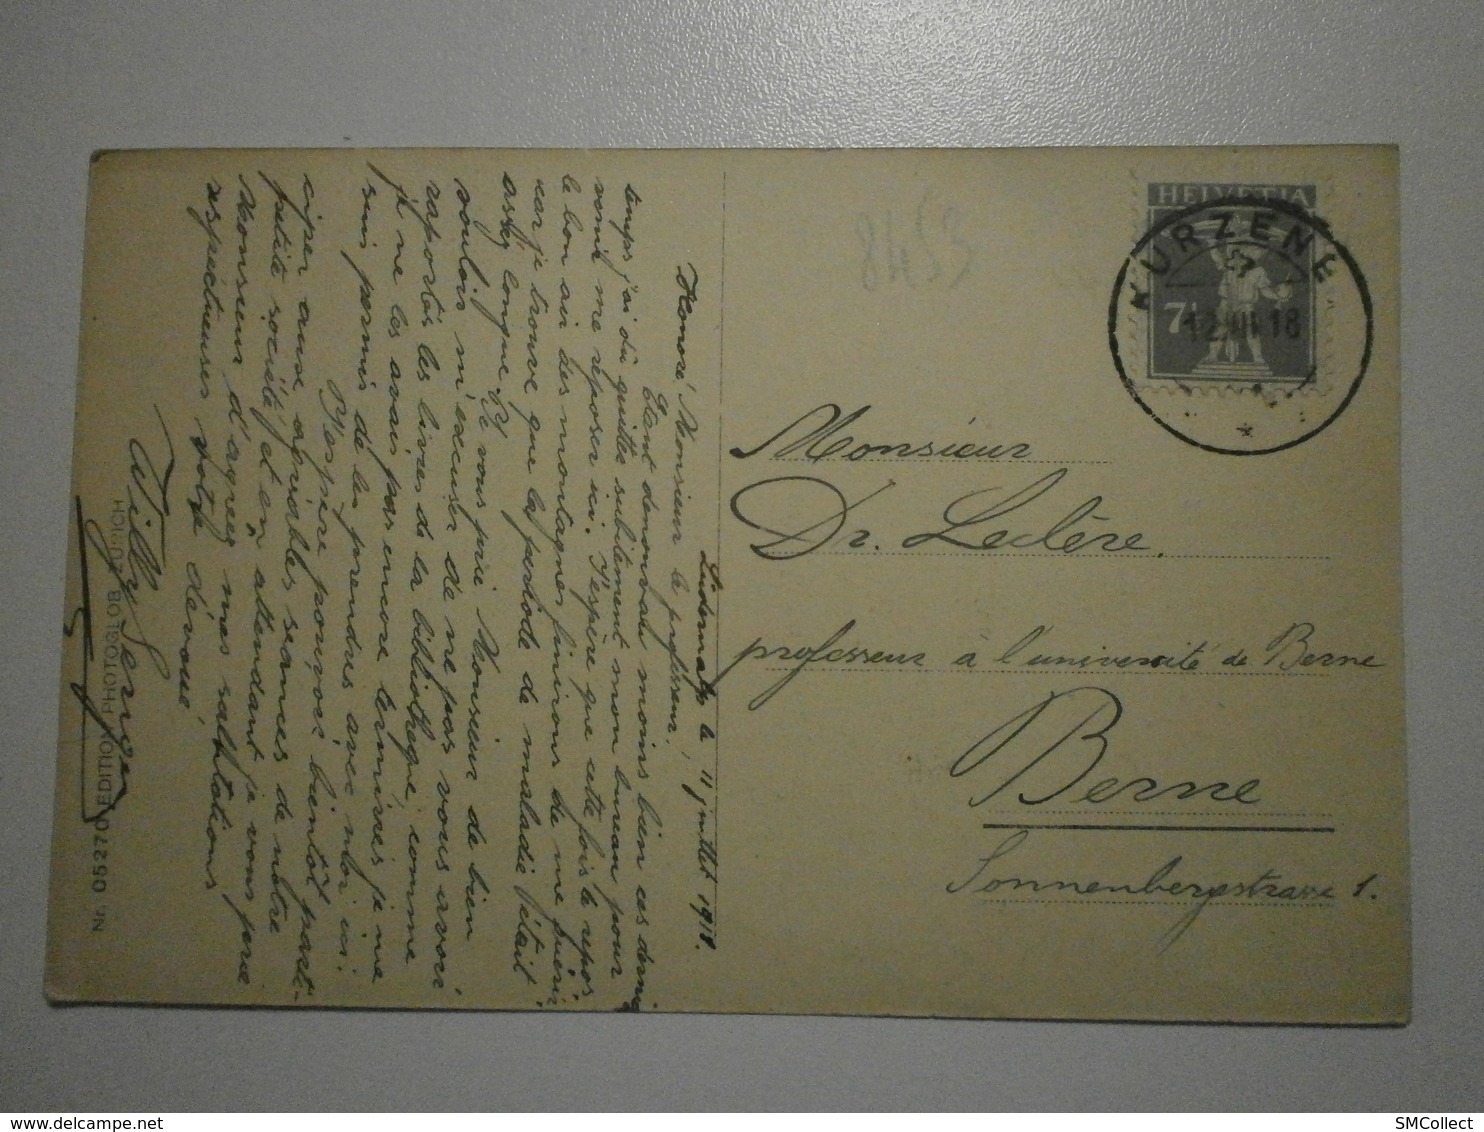 Ludernalp le 11 juillet 1918.
Honoré Monsieur le professeur,
Etant denouvau moins bien ces derniers
temps j'ai dû quitté subitement mon bureau pour
venir me reposer ici. J'espère que cette fois le repos
le bon air des montagnes finiron de me guérir
car je trouve que la periode de maladie était
assez longue. Je vous prie Monsieur de bien
vouloir m'excuser de ne pas vous avoir
raportés les livres de la bibliothèque, comme
je ne les avais pas encore terminés je me
suis permis de les prendres avec moi ici.
J'espère pouvoir bientôt parti-
ciper aux agréables séances de nôtre
petite société et en attendant je vous prie
Monsieur d'agréer mes salutations
respectueuses votre dévoué
Willy
Nr. 05270 EDITION PHOTOGLOB ZÜRICH
8453
HELVETIA
7½
KURZENE
12.VII.18
Monsieur
Dr. Leclère.
professeur à l'université de Berne
Berne
Sonnenbergstrasse 1.
SMCollect